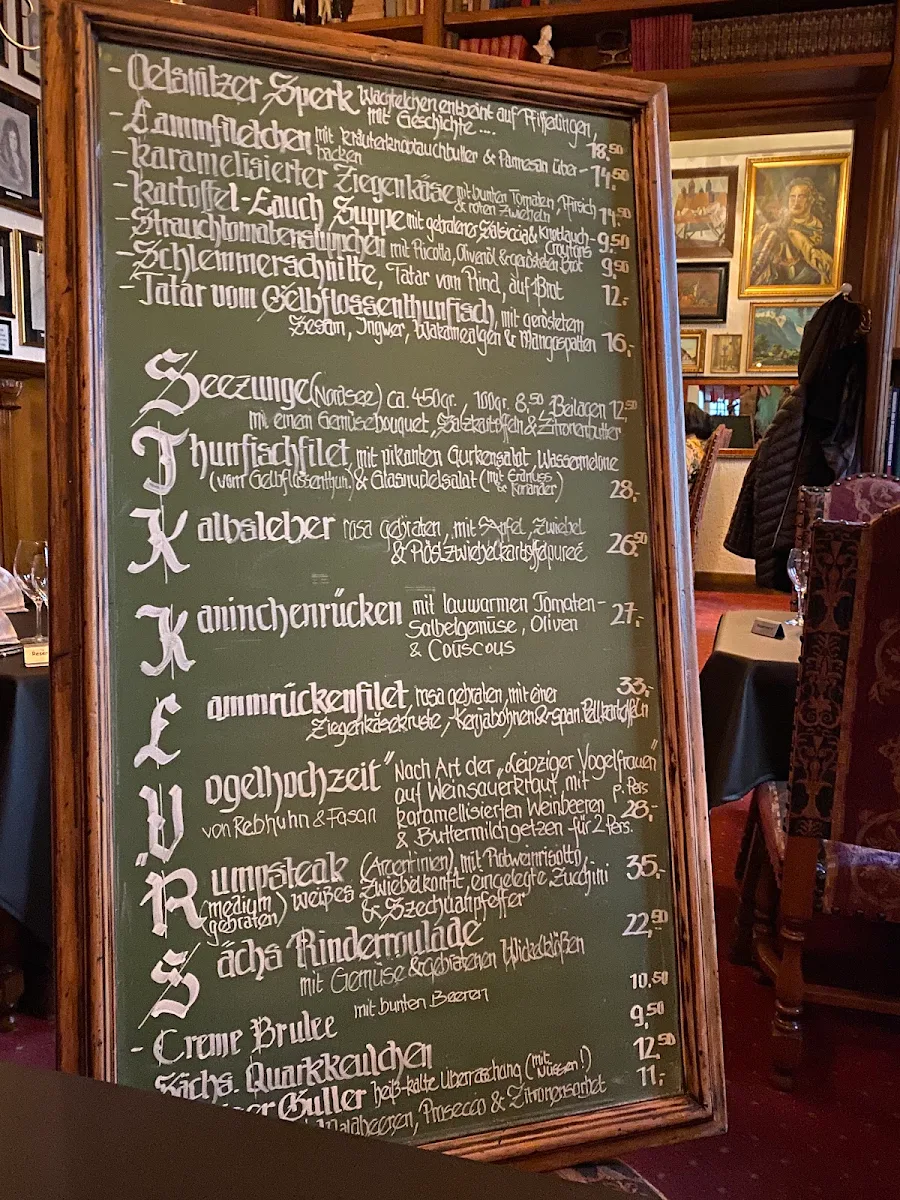 - Oelsnitzer Sperk Wachtelchen entbeint auf Pfifferlingen,
mit Geschichte .... 18.50
- Lammfiletchen mit Kräuterknoblauchbutter & Parmesan über-
backen 14.50
- Karamelisierter Ziegenkäse mit bunten Tomaten, Pfirsich
& roten Zwiebeln 14.50
- Kartoffel-Lauch Suppe mit gebratener Salsiccia & Knoblauch-
Croutons 9.50
- Strauchtomatensüppchen mit Ricotta, Olivenöl & geröstetem Brot 9,50
- Schlemmerschnitte, Tatar vom Rind, auf Brot 12.-
- Tatar vom Gelbflossenthunfisch, mit geröstetem
Sesam, Ingwer, Wakamealgen & Mangospalten 16,-
Seezunge (Nordsee) ca. 450gr., 100gr. 8,50 Beilagen 12,50
mit einem Gemüsebouquet, Salzkartoffeln & Zitronenbutter
Thunfischfilet mit pikanten Gurkensalat, Wassermelone
(vom Gelbflossenthun.) & Glasnudelsalat (mit Erdnuss & Koriander) 28,-
Kalbsleber rosa gebraten, mit Apfel, Zwiebel
& Röstzwiebelkartoffelpureé 26,50
Kaninchenrücken mit lauwarmen Tomaten- 27,-
Salbeigemüse, Oliven
& Couscous
Lammrückenfilet, rosa gebraten, mit einer 33,-
Ziegenkäsekruste, Kenjabohnen & span. Pellkartoffeln
"Vogelhochzeit" Nach Art der „Leipziger Vogelfrauen"
von Rebhuhn & Fasan auf Weinsauerkraut, mit p. Pers
karamellisierten Weinbeeren 28,-
& Buttermilchgetzen für 2 Pers.
Rumpsteak (Argentinien) mit Rotweinrisotto, 35,-
(medium gebraten) weißes Zwiebelkonfit, eingelegte Zucchini
& Szechuanpfeffer
Sächs Rinderroulade 22,90
mit Gemüse & gebratenen Wickelklößen
- Creme Brulee mit bunten Beeren 10,50
Sächs. Quarkkeulchen 9,50
Guller heiß-kalte Überraschung (mit Nüssen!) 12,50
Waldbeeren, Prosecco & Zitronensorbet 11,-